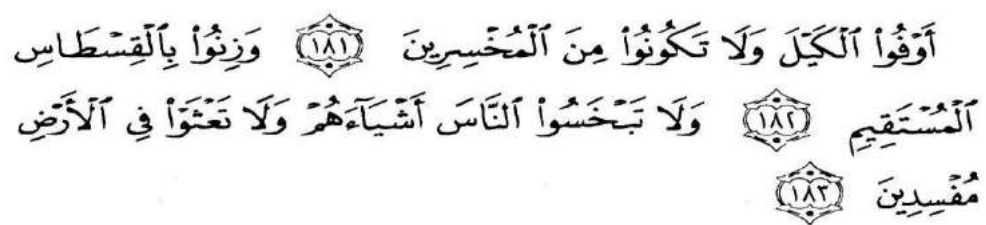 أَوْفُوا۟ ٱلْكَيْلَ وَلَا تَكُونُوا۟ مِنَ ٱلْمُخْسِرِينَ ﴿١٨١﴾ وَزِنُوا۟ بِٱلْقِسْطَاسِ
ٱلْمُسْتَقِيمِ ﴿١٨٢﴾ وَلَا تَبْخَسُوا۟ ٱلنَّاسَ أَشْيَآءَهُمْ وَلَا تَعْثَوْا۟ فِى ٱلْأَرْضِ
مُفْسِدِينَ ﴿١٨٣﴾